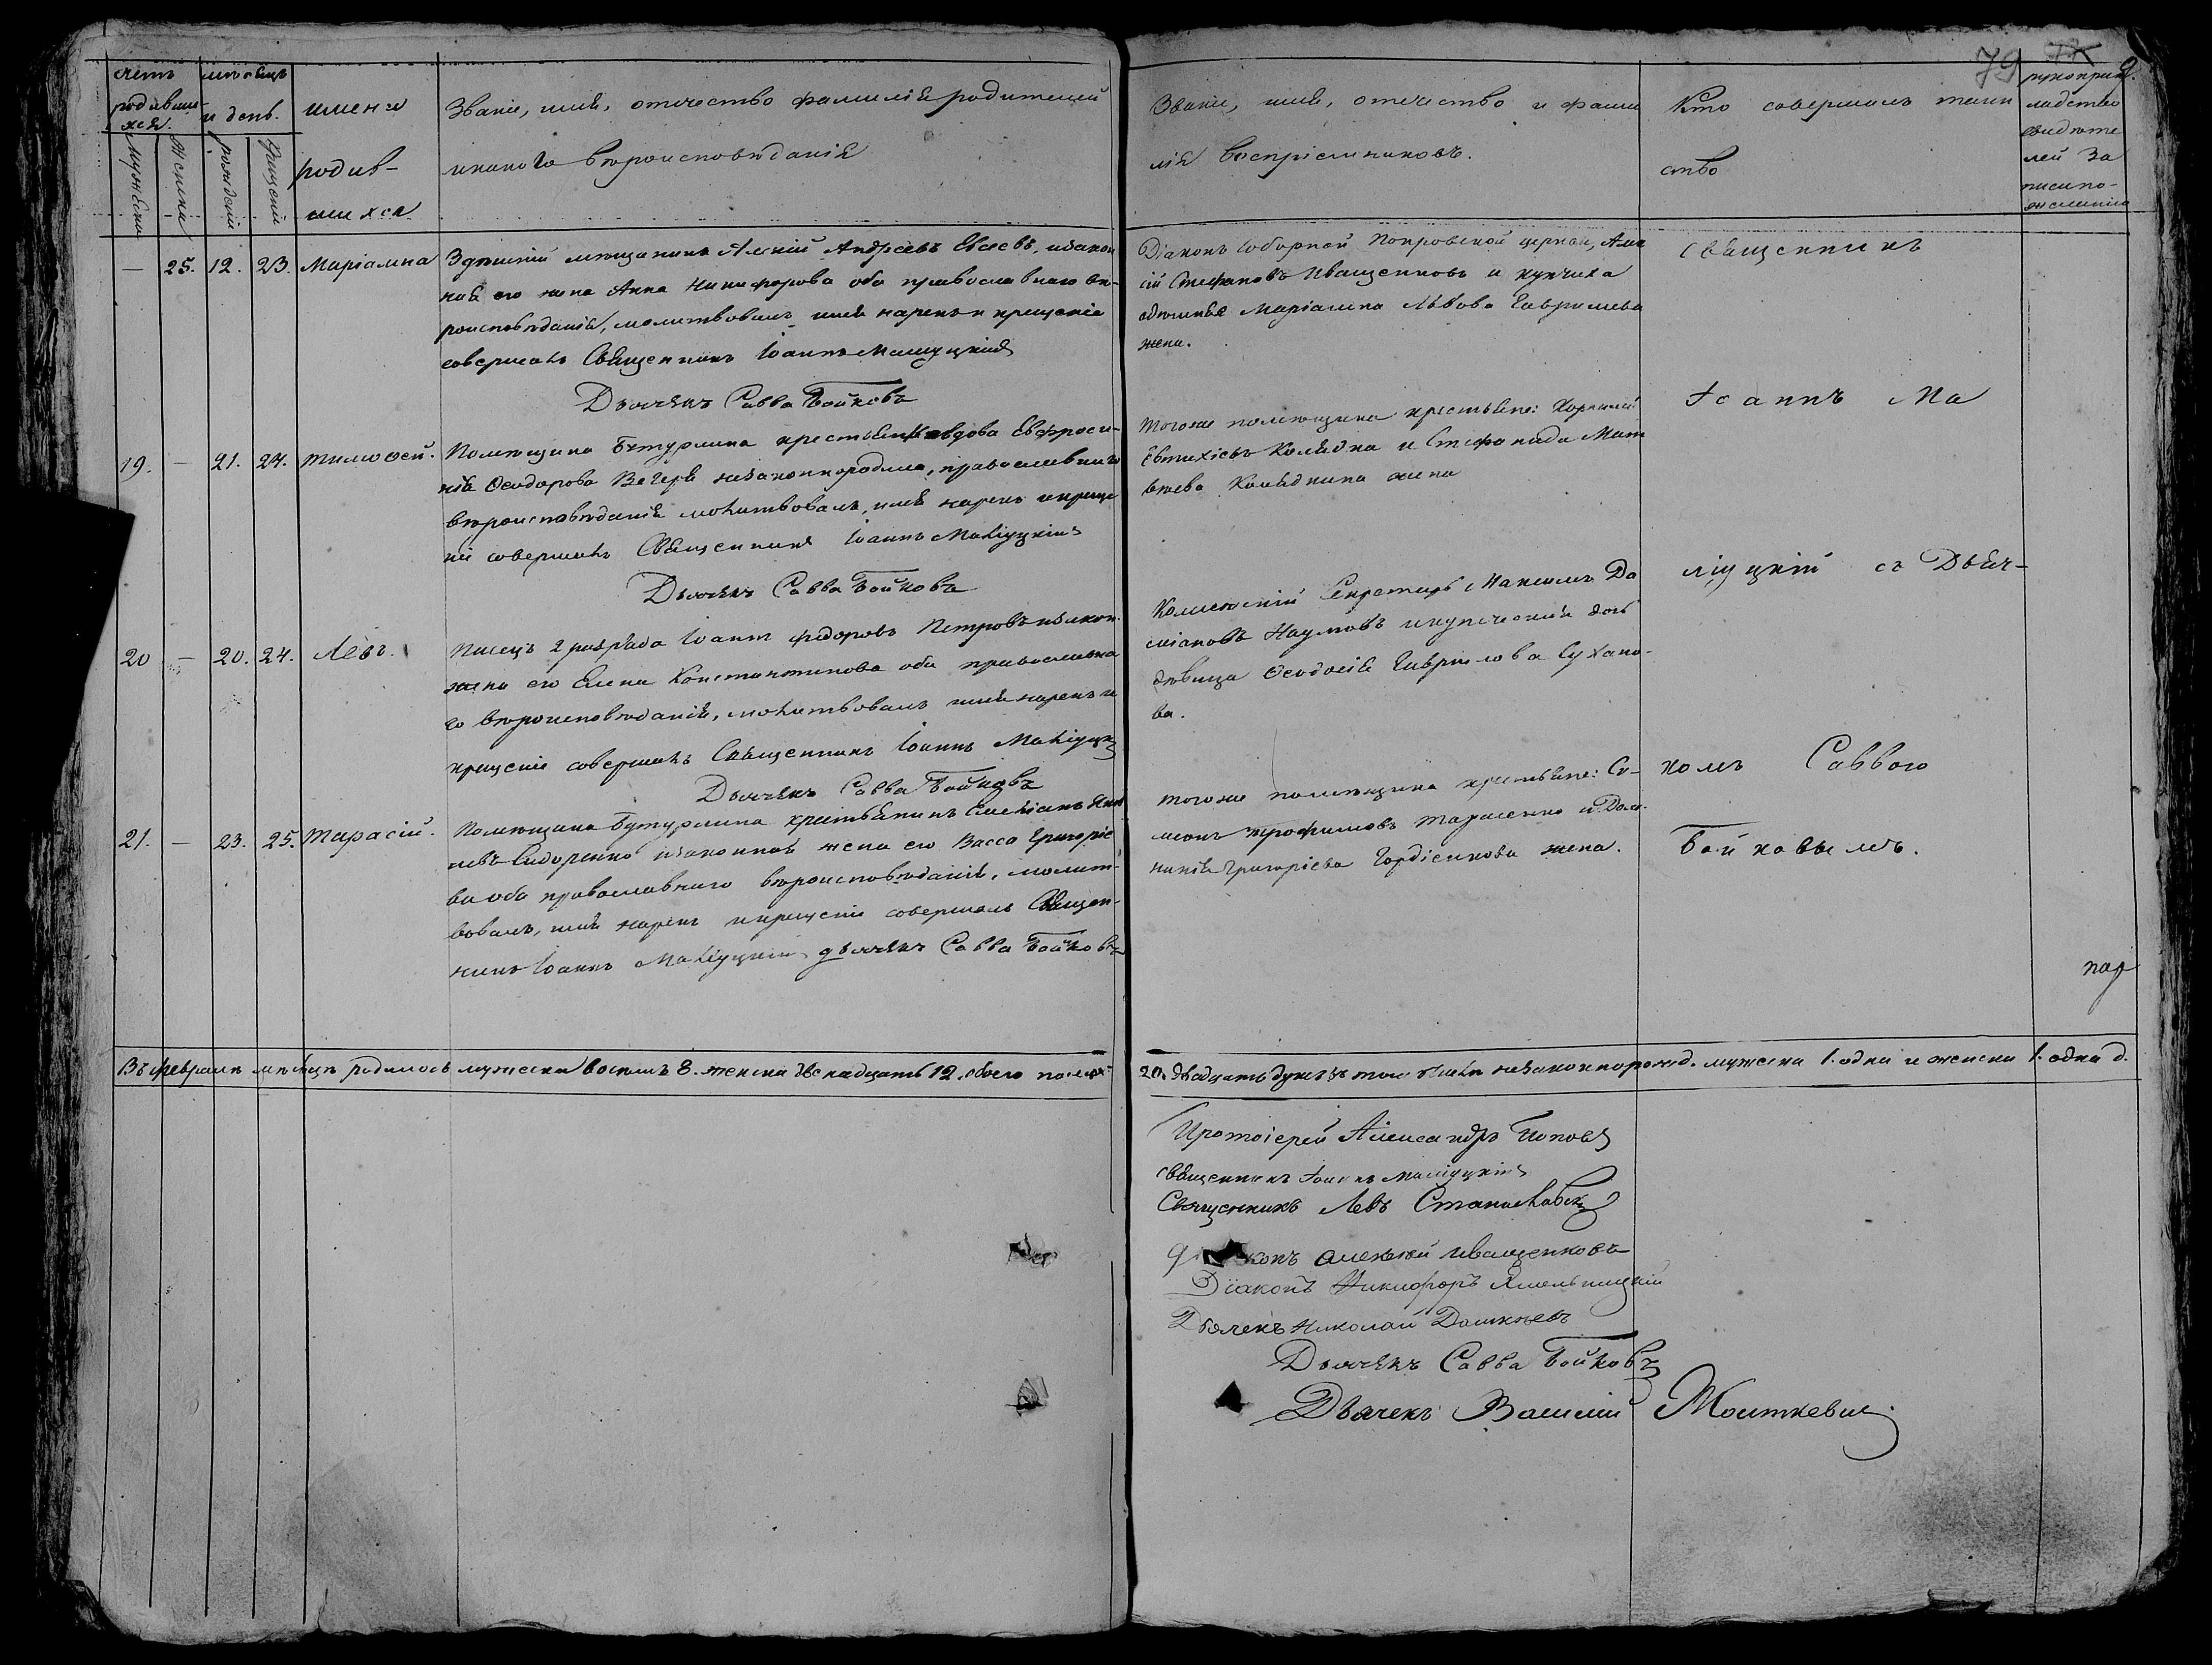 79
счетъ родивши-хся.
мѣсяцъ и день.
имена родив-шихся
Званіе, имя, отчество фамилія родителей
икакого вѣроисповѣданія
Званіе, имя, отчество и фами
лія воспріемниковъ.
Кто совершалъ таин
ство
рукопри
ладство
свидѣте
лей За
писи по
желанію
мужескіи
женски
рожденія
крещенія
— 25. 12. 23. Маріамна
Здѣшній мещанинъ Алексій Андреевъ Евсевъ, изакон
ная его жена Анна Никифорова оба православнаго вѣ-
роисповѣданія, молитвовалъ имя нарекъ и крещеніе
совершалъ Священникъ Іоаннъ Маліуцкій
Дьячекъ Савва Бойковъ
Діаконъ Соборной Покровской церкви, Алек
сій Стефановъ Иващенковъ и купчиха
Маріамна Львова Гаврилева
жена.
Священникъ
19. — 21. 24. Тимофей.
Помѣщика Бутурлина крестьянка вдова Евфроси-
нія Феодорова Вечеря незаконнородила, православнаго
вѣроисповѣданія молитвовалъ, имя нарекъ икреще
ніе совершалъ Священникъ Іоаннъ Маліуцкій
Дьячекъ Савва Бойковъ
Тогоже помѣщика крестьяне: Корнилій
Евтихіевъ Колядка и Стефанида Мат
вѣева Колядкина жена
Іоаннъ Ма
20 — 20. 24. Левъ.
Писецъ 2 разряда Іоаннъ Федоровъ Петровъ изакон.
жена его Елена Константинова оба православна
го вѣроисповѣданія, молитвовалъ имя нарекъ и
крещеніе совершалъ Священникъ Іоаннъ Маліуцкій
Дьячекъ Савва Бойковъ
Секретарь Максимъ Да
міановъ Наумовъ икупеческая дочь
дѣвица Феодосія Гаврилова Сухано-
ва.
ліуцкій съ Дьяч-
21. — 23. 25. Тарасій.
Помѣщика Бутурлина крестьянинъ Емеліанъ
Сидоренко изаконная жена его Васса Григоріе
ва оба православнаго вѣроисповѣданія, молит-
вовалъ, имя нарекъ икрещеніе совершалъ Священ-
никъ Іоаннъ Маліуцкій дьячекъ Савва Бойковъ
Тогоже помѣщика крестьяне: Си-
меонъ Трофимовъ Тарасенко и Дом-
никія Григоріева Гордіенкова жена.
комъ Саввою
Бойковымъ.
Въ февралѣ мѣсяцѣ родилось мужеска восемь 8. женска двенадцать 12. обоего пола
20. двадцать душъ въ томъ числѣ незаконнорожд. мужеска 1. одна и женска 1. одна д.
Протоіерей Александръ Поповъ
священникъ Іоаннъ Маліуцкій
Священникъ Левъ Станиславскій
конъ Алексѣй Иващенковъ
Діаконъ Никифоръ Ямельницкій
Дьячекъ Николай Дашкѣевъ
Дьячекъ Савва Бойковъ
Дьячекъ Василій Моиткевич